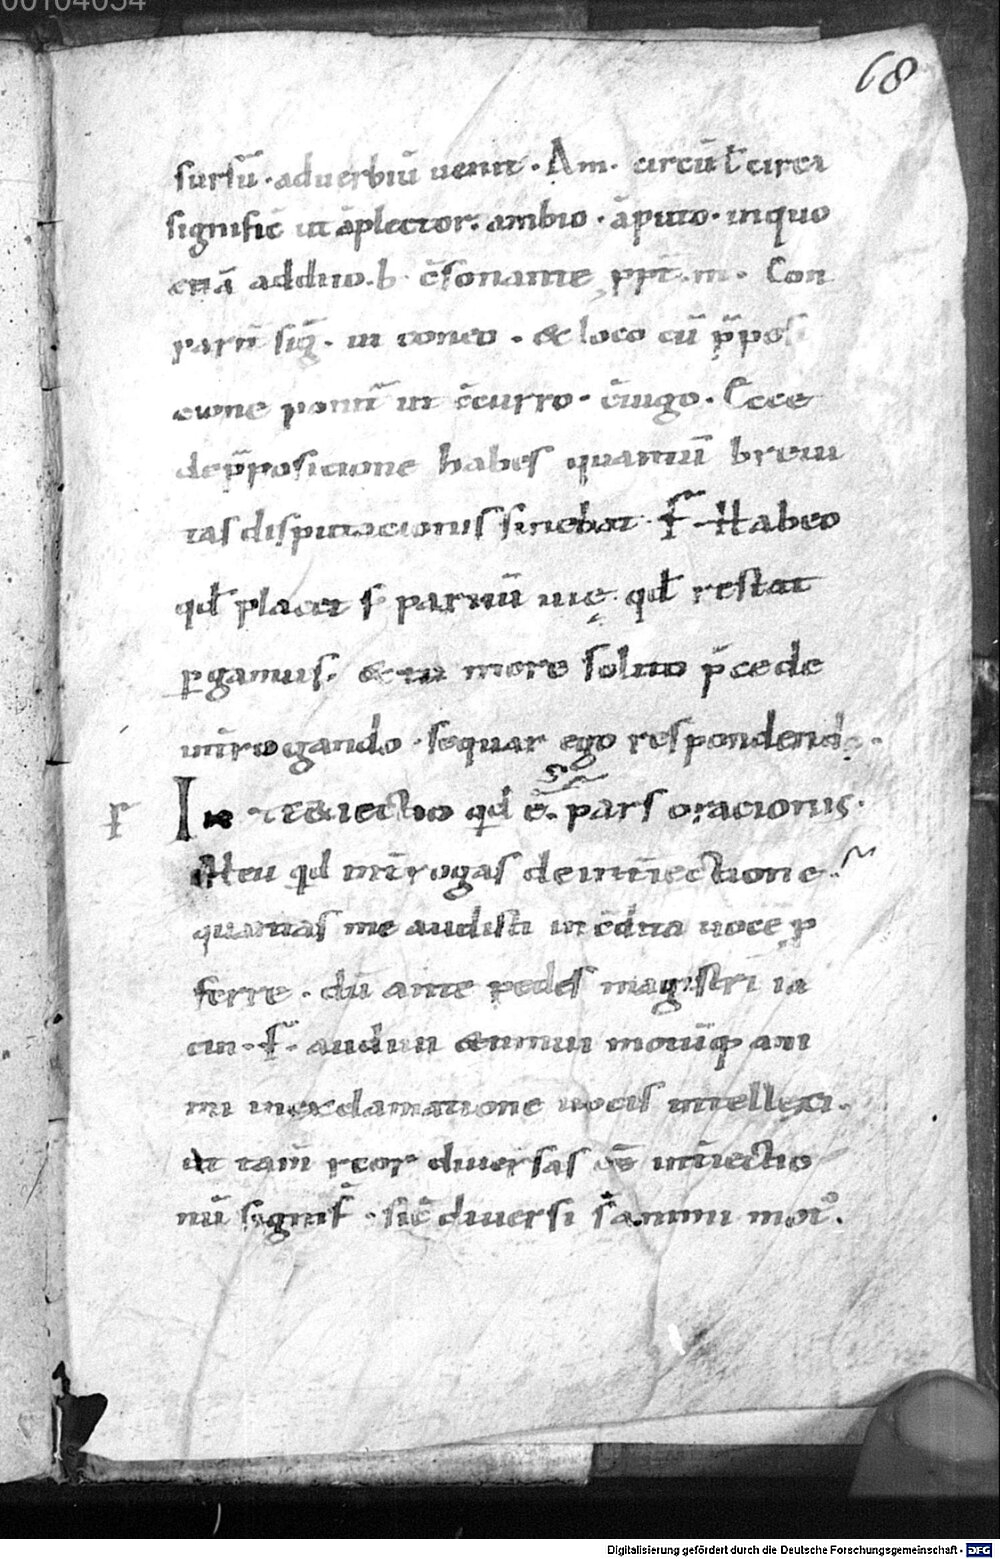 00104054
68
sursū · adverbiū uenit · Am · circū ł circa
significʼ ut āplector · ambio · āputo · in quo
etiā addito · b · c̄sonante ppt̄ · m · Con
partē sig̅ · in toneo · & loco cū p̄posi
cione ponit̄ ut c̄curro · c̄iugo · Ecce
de p̄posicione habes quantū breui
tas disputacionis sinebat · F · Habeo
qd̄ placet s; parnū qd̄ restat
pgamus · & tu more solito p̄cede
int̄rogando · sequar ego respondendo ·
F In t̄eriectio qid ē · pars oracionis ·
Heu qid int̄rogas de int̄iectione ·
quantas me audisti in c̄dita uoce p
ferre · dū ante pedes magistri ia
cui · F · audiui & animū ani
mi in exclamatione uocis intellexi ·
ut tam̄ reor diuersas eē int̄iectio
nū signif · sic̄ diuersi s̄ animi mot⁹ ·
Digitalisierung gefördert durch die Deutsche Forschungsgemeinschaft - DFG